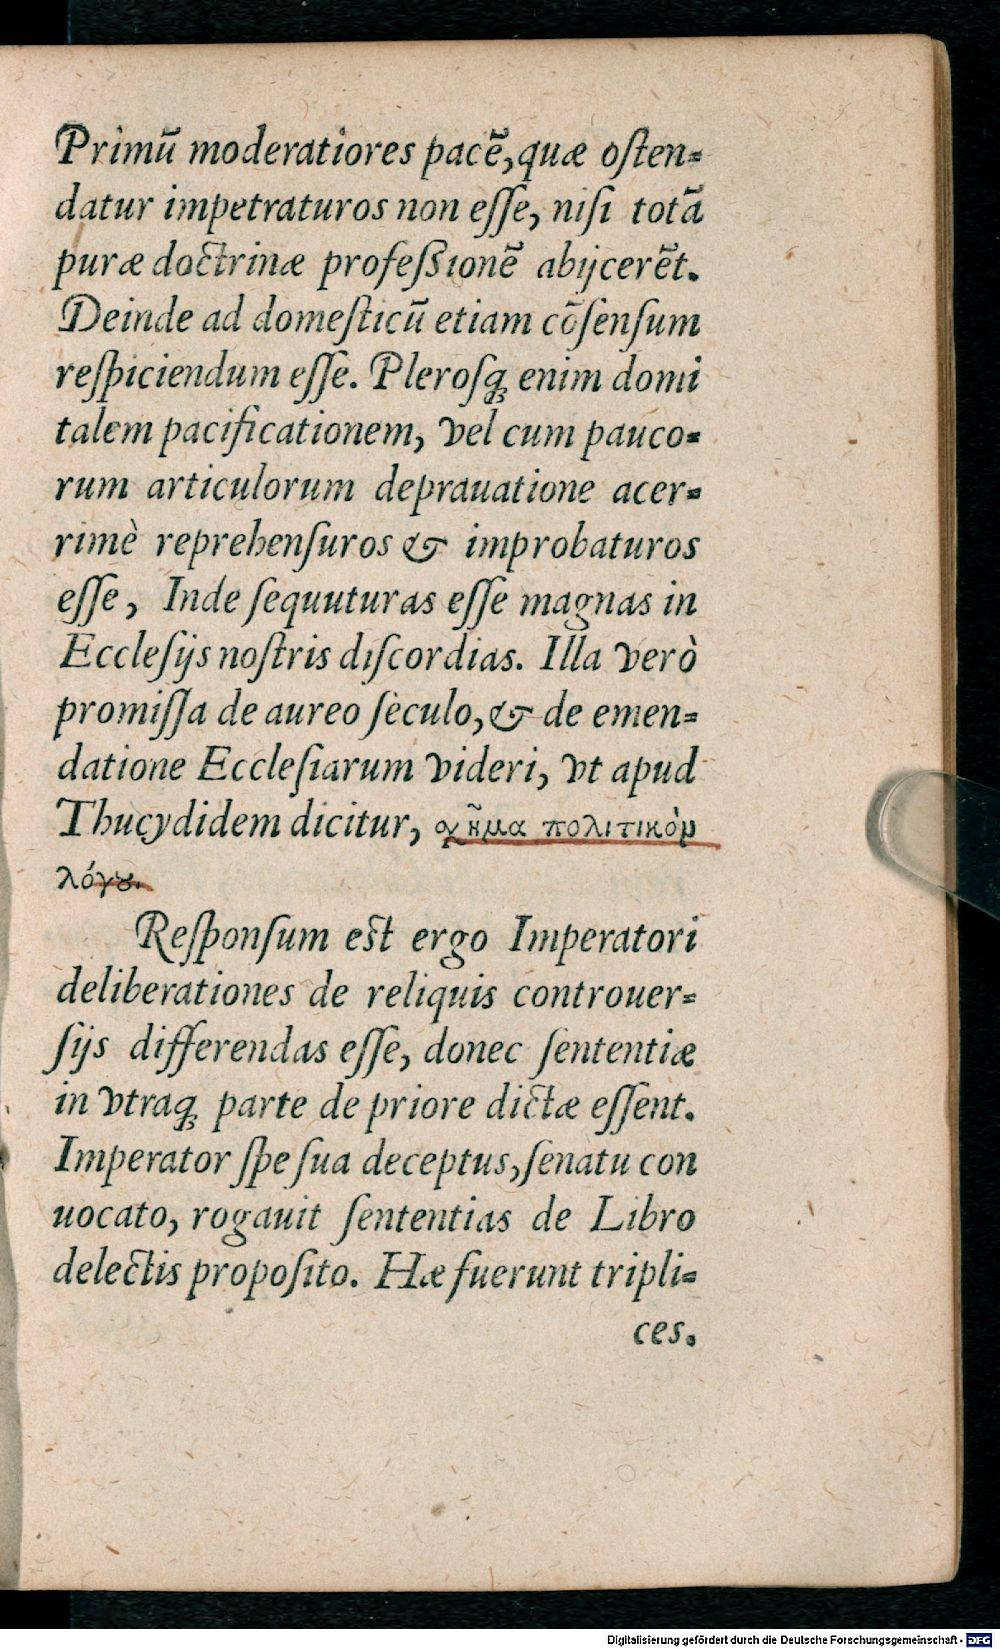 Primū moderatiores pacē, quæ oſten⸗
datur impetraturos non eſſe, niſi totā
puræ doctrinæ profeßionē abijcerēt.
Deinde ad domeſticū etiam cōſenſum
reſpiciendum eſſe. Pleroſqꝫ enim domi
talem pacificationem, vel cum pauco⸗
rum articulorum deprauatione acer⸗
rimè reprehenſuros & improbaturos
eſſe, Inde ſequuturas eſſe magnas in
Eccleſijs noſtris diſcordias. Illa verò
promiſſa de aureo ſeculo, & de emen⸗
datione Eccleſiarum videri, vt apud
Thucydidem dicitur, σχῆμα πολιτικὸμ
λόγȣ.
Reſponſum est ergo Imperatori
deliberationes de reliquis controuer⸗
ſijs differendas eſſe, donec ſententiæ
in vtraqꝫ parte de priore dictæ eſſent.
Imperator ſpe ſua deceptus, ſenatu con
uocato, rogauit ſententias de Libro
delectis propoſito. Hæ fuerunt tripli⸗
ces.
Digitalisierung gefördert durch die Deutsche Forschungsgemeinschaft - DFG